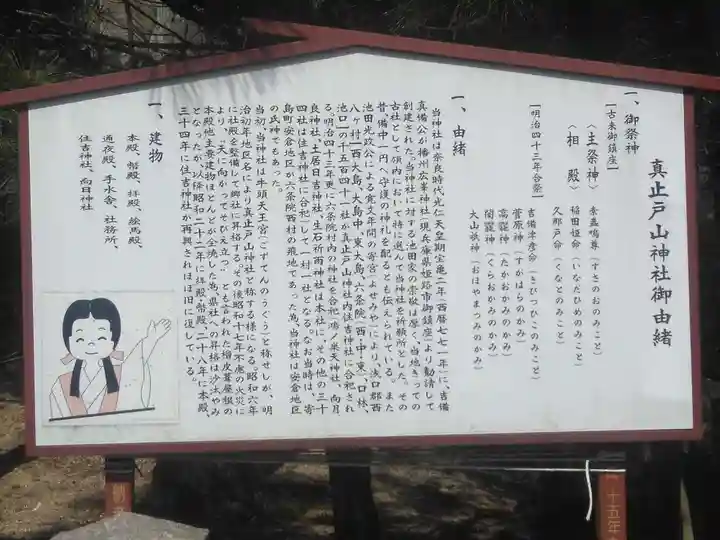 真止戸山神社御由緒
一、御祭神
［古来御鎮座］
〈主祭神〉 素盞嗚尊（すさのおのみこと）
〈相殿〉 稲田姫命（いなだひめのみこと）
久那戸命（くなとのみこと）
［明治四十三年合祭］
吉備津彦命（きびつひこのみこと）
菅原神（すがはらのかみ）
高龗神（たかおかみのかみ）
闇龗神（くらおかみのかみ）
大山祇神（おほやまつみのかみ）
一、由緒
当神社は奈良時代光仁天皇期宝亀二年（西暦七七一年）に、吉備
真備公が播州広峯神社（現兵庫県姫路市御鎮座）より勧請して
創建された。当神社に対する池田家の崇敬は厚く、当地きっての
古社として領内において特に選んで当神社を祈願所とした。その
昔、備中一円へ守護の神札を配るとも伝えられている。また
池田光政公による寛文年間の寄宮（よせみや）により、浅口郡西
八ヶ村（西大島、大島中、東大島、六条院（西・中・東）口林、
池口）の千五百四十一社が真止戸山神社内住吉神社に合祀され
る。明治四十三年更に六条院村内の神社を合祀、鴻ノ巣天神社、向月
良神社、土居日吉神社、生石祈雨神社は本社に、その他の三十
四社は住吉神社に合祀して一村一社となる。なお当時は、寄
島町安倉地区が六条院西村の飛地であった為、当神社は安倉地区
の氏神でもあった。
当初、当神社は牛頭天王宮（ごずてんのうぐう）と称せしが、明
治初年地区名により真止戸山神社と称する様になる。昭和六年
に社殿を整備して郷社に昇格する。その後昭和十七年不慮の火災に
より、「天に向かってそびえ立つ」とも言われた檜皮葺屋根の
本殿他主要建物ほとんどが全焼した為、県社への昇格は沙汰やみ
となったが、以後昭和二十二年に拝殿・幣殿、二十八年に本殿、
三十四年に住吉神社が再興されほぼ旧に復している。
一、建物
本殿、幣殿、拝殿、絵馬殿、
通夜殿、手水舎、社務所、
住吉神社、向日神社
十五年